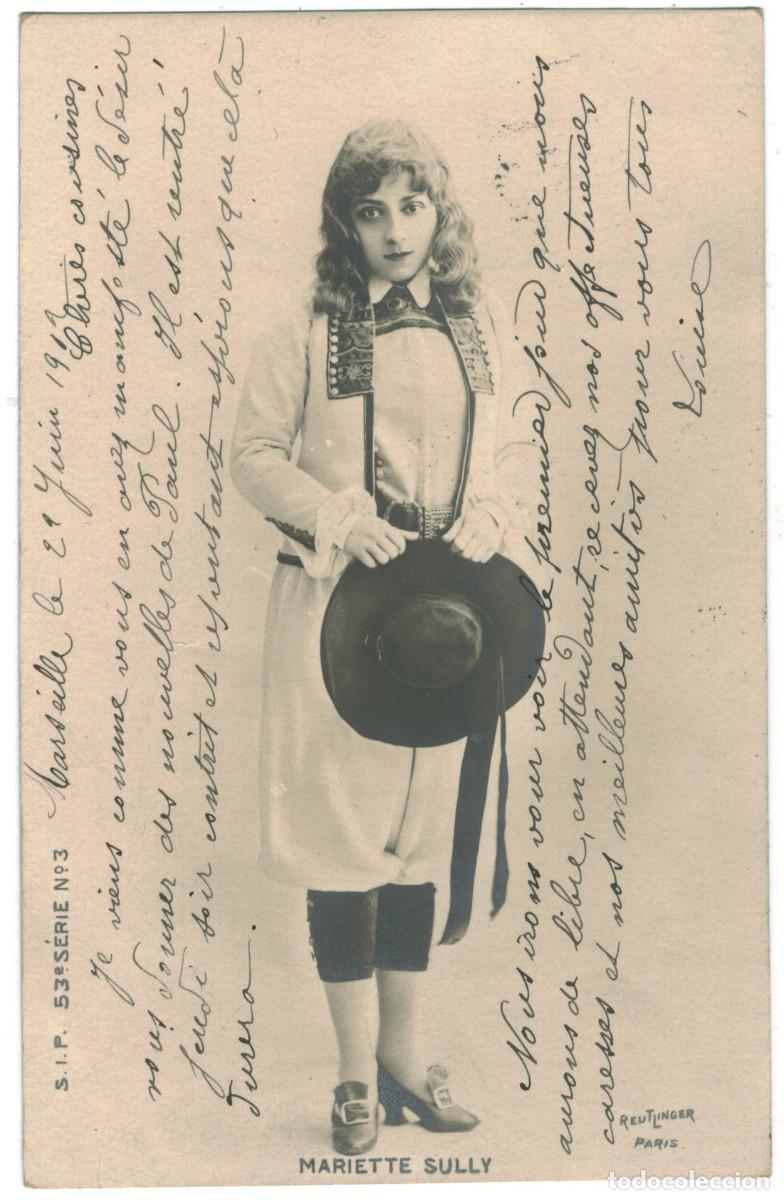 Marseille le 21 Juin 1902
Chères cousines
Je viens comme vous en avez manifesté le désir
vous donner des nouvelles de Paul. Il est rentré
jeudi soir contrit et repentant espérons que cela
durera.
Nous irons vous voir le premier jour que nous
aurons de libre, en attendant, recevez nos affectueuses
caresses et nos meilleures amitiés pour vous tous
Louise
S.I.P. 53e SÉRIE No 3
REUTLINGER
PARIS.
MARIETTE SULLY
todocoleccion